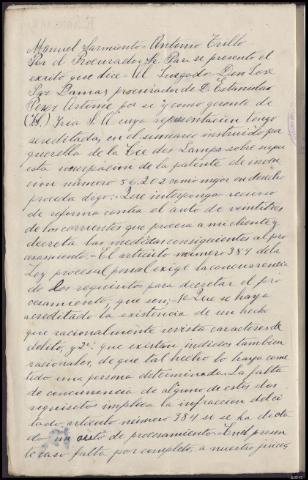 Manuel Sarmiento = Antonio Trillo
Por el Procurador Sr. Paz se presento el
escrito que dice = Al Juzgado Don José
Paz Damas, procurador de D. Estanislao
Pérez Artime por si y como gerente de
S. A. cuya representación tengo
acreditada, en el sumario instruido por
querella de la Cie des Lamps sobre supu
esta usurpación de la patente de inven
cion número 56.202 como mejor en derecho
proceda digo: Que interpongo recurso
de reforma contra el auto de veintitres
de los corrientes que procesa a mi cliente y
decreta las medidas consiguientes al pro
cesamiento. = El articulo número 384 de la
Ley procesal penal exige la concurrencia
de dos requisitos para decretar el pro
cesamiento, que son: 1º Que se haya
acreditado la existencia de un hecho
que racionalmente revista caracteres de
delito, y 2º: que existan indicios tambien
racionales, de que tal hecho lo haya come
tido una persona determinada. La falta
de concurrencia de alguno de estos dos
requisitos implica la infraccion del ci
tado articulo número 384 si se ha dicta
do un auto de procesamiento = En el presen
te caso falta por completo, a nuestro juicio